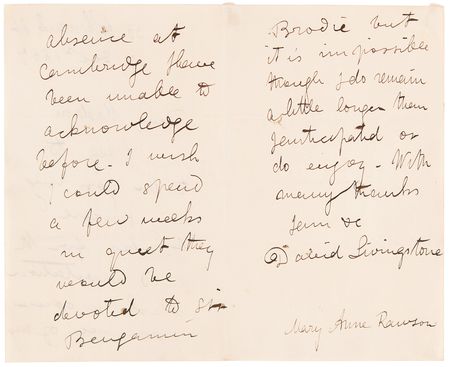 absence at
Cambridge I have
been unable to
acknowledge
before. I wish
I could spend
a few weeks
in quiet they
would be
devoted to Sir
Benjamin
Brodie but
it is impossible
though I do remain
a little longer than
I anticipated or
do enjoy - With
many thanks
&c
David Livingstone
Mary Anne Rawson